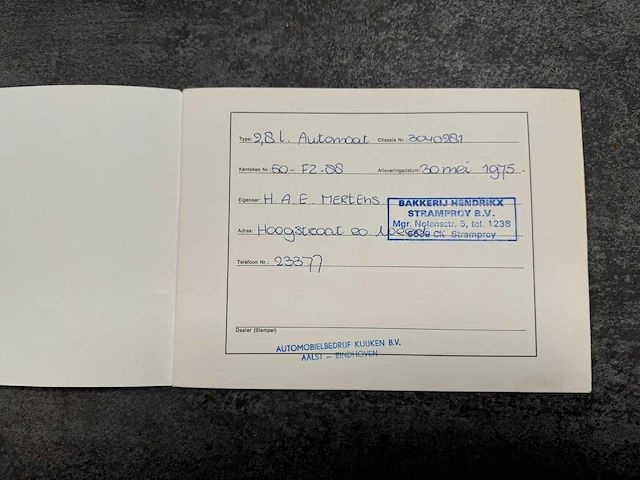 Type: 2,8 l. Automaat Chassis Nr.: 3040981
Kenteken Nr.: 60-FZ-88 Afleveringsdatum: 30 mei 1975.
Eigenaar: H.A.E. Mertens.
BAKKERIJ HENDRIKX
STRAMPROY B.V.
Mgr. Nolensstr. 5, tel. 1238
6039 CK Stramproy
Adres: Hoogstraat 20
Telefoon Nr.: 23377
Dealer (Stempel)
AUTOMOBIELBEDRIJF KUIJKEN B.V.
AALST - EINDHOVEN